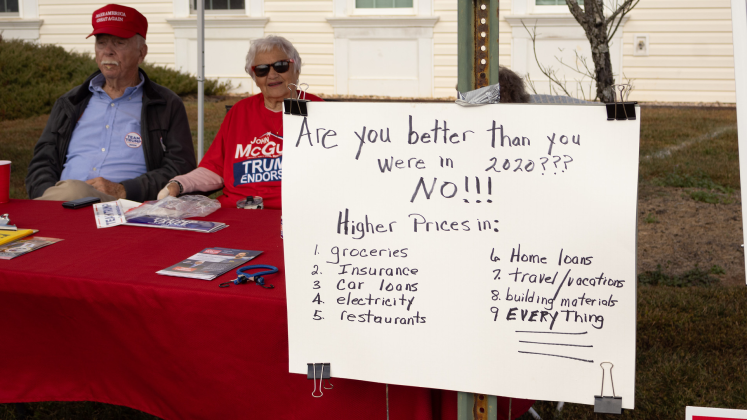 MAKE AMERICA
GREAT AGAIN
JOHN
McGU
TRUM
ENDORS
Are you better than you
were in 2020???
NO!!!
Higher Prices in:
1. groceries
2. Insurance
3 Car loans
4. electricity
5. restaurants
6 Home loans
7. travel/vacations
8. building materials
9 EVERYThing